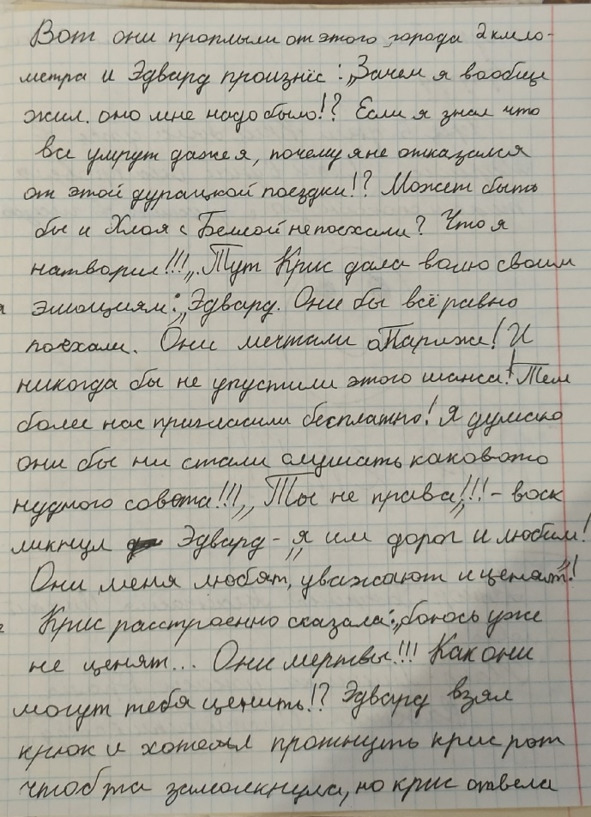 Вот они проплыли от этого города 2 кило-
метра и Эдвард произнёс: „Зачем я вообще
жил. оно мне надо было!? Если я знал что
все умрут даже я, почему я не отказался
от этой дурацкой поездки!? Может быть
бы и Хлоя с Беллой не поехали? Что я
натворил!!!„. Тут Крис дала волю своим
эмоциям: „Эдвард. Они бы всё равно
поехали. Они мечтали о Париже! И
никогда бы не упустили этого шанса! Тем
более нас пригласили бесплатно! Я думаю
они бы ни стали слушать каковото
нудного совета!!!„ „Ты не права„!!! - воск
ликнул Эдвард - „я им дорог и любим!
Они меня любят, уважают и ценят"!
Крис расстроенно сказала: „боюсь уже
не ценят... Они мертвы!!! Как они
могут тебя ценить!? Эдвард взял
крюк и хотел проткнуть крис рот
чтоб та замолкнула, но крис отвела